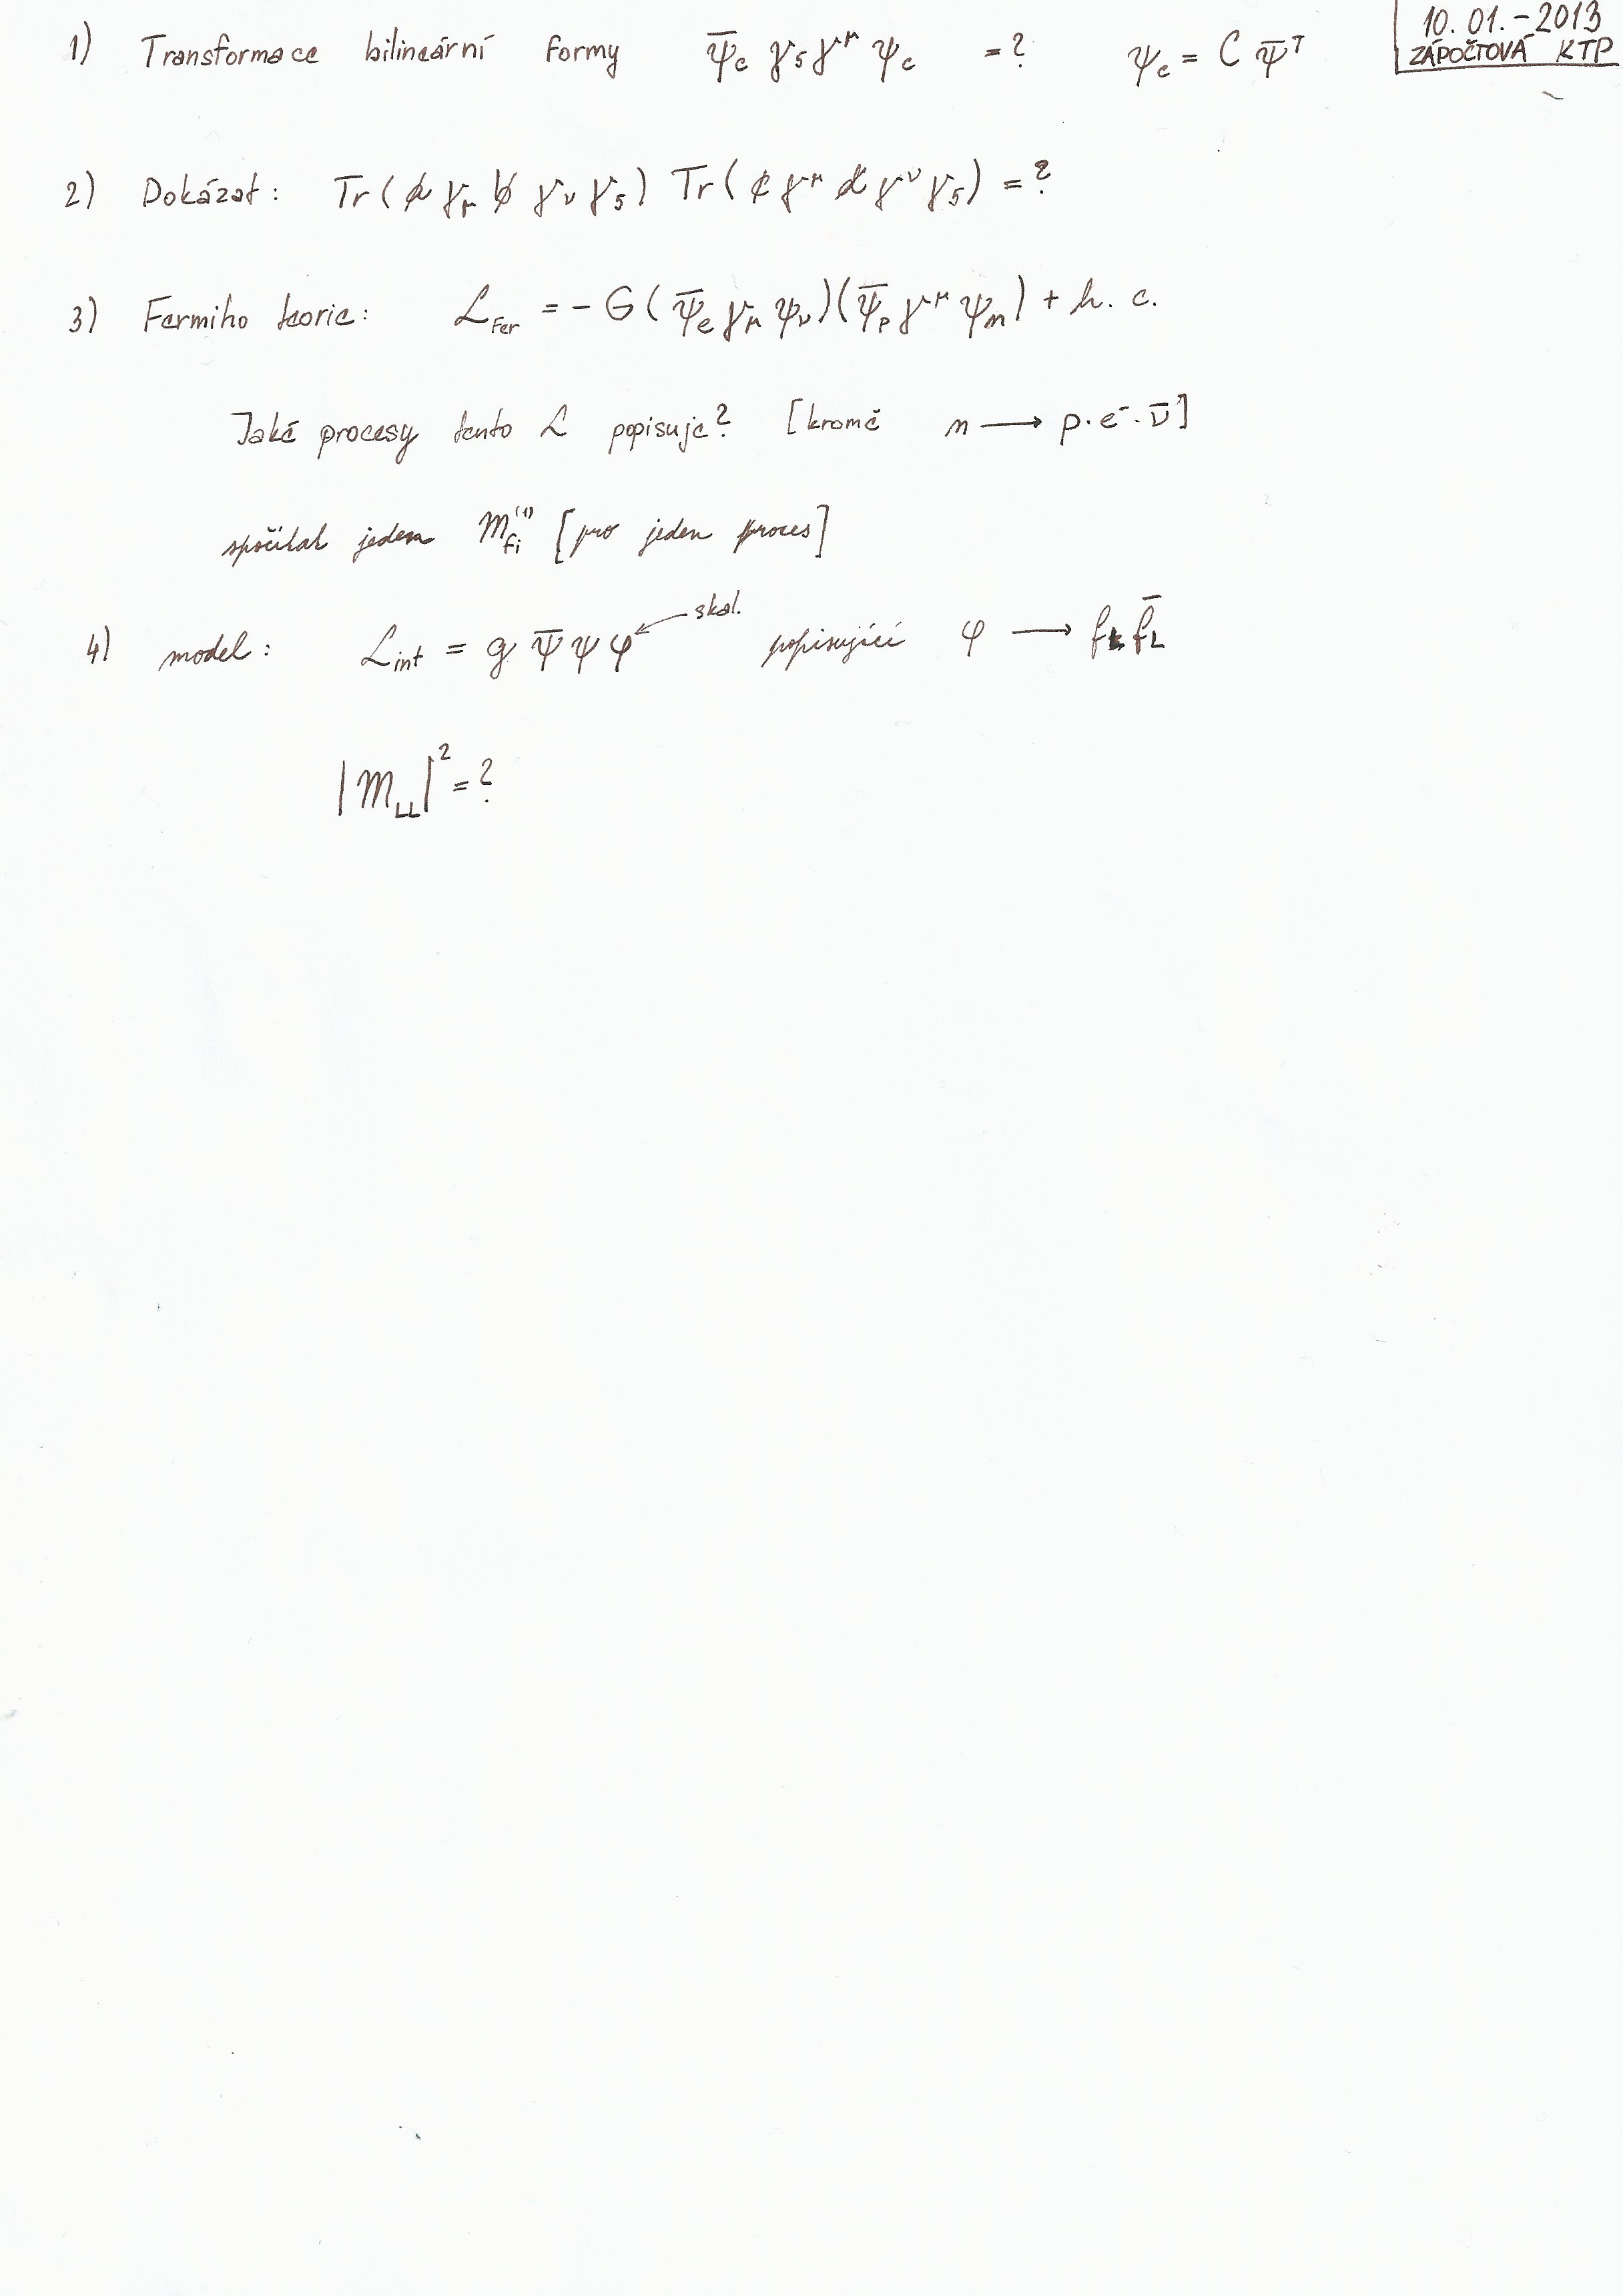 10. 01. - 2013
ZÁPOČTOVÁ KTP
1) Transformace bilineární formy ψ̄_c γ_5 γ^μ ψ_c = ? ψ_c = C ψ̄^T
2) Dokázat: Tr(a̸ γ_μ b̸ γ_ν γ_5) Tr(c̸ γ^μ d̸ γ^ν γ_5) = ?
3) Fermiho teorie: ℒ_Fer = - G (ψ̄_e γ_μ ψ_ν)(ψ̄_p γ^μ ψ_n) + h. c.
Jaké procesy tento ℒ popisuje? [kromě n ⟶ p · e⁻ · ν̄]
spočítat jeden M_fi^(1) [pro jeden proces]
4) model: ℒ_int = g ψ̄ ψ φ ← skal. popisující φ ⟶ f_L f̄_L
|M_LL|² = ?